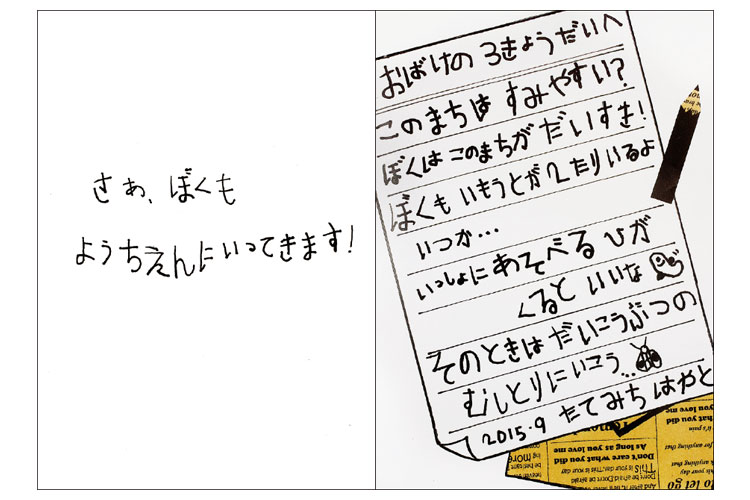 さぁ、ぼくも
ようちえんにいってきます!
おばけの 3きょうだいへ
このまちは すみやすい?
ぼくは このまちが だいすき!
ぼくも いもうとが 2たりいるよ
いつか…
いっしょに あそべる ひが
くると いいな
そのときは だいこうぶつの
むしとりにいこう…
2015.9 たてみち はやと